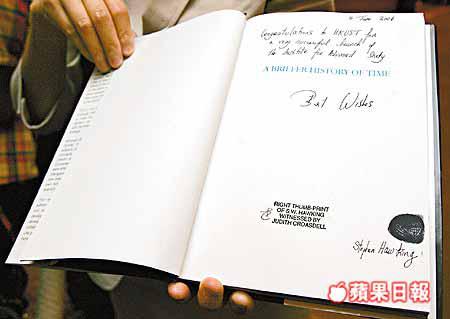 June 2006
Congratulations to HKUST for
a very successful launch of
the Institute for Advanced Study
A BRIEFER HISTORY OF TIME
Best Wishes
RIGHT THUMB-PRINT
OF S.W. HAWKING
WITNESSED BY
JUDITH CROASDELL
Stephen Hawking
蘋果日報